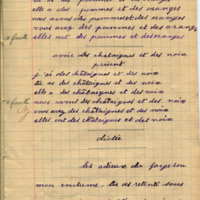 tu as des pommes et des oranges
elle a des pommes et des oranges
nous avons des pommes et des oranges
vous avez des pommes et des orang
elles ont des pommes et des oranges
avoir des châtaignes et des noix
présent
j'ai des châtaignes et des noix
tu as des châtaignes et des noix
elle a des châtaignes et des noix
nous avons des châtaignes et des noix
vous avez des châtaignes et des noix
elles ont des châtaignes et des noix
dictée
les adieux du forgeron
mon enclume tu as retenti sous